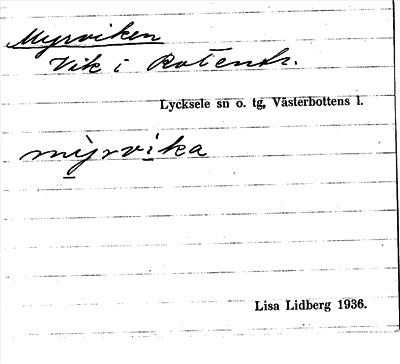 Myrviken
Vik i Rotentr.
Lycksele sn o. tg, Västerbottens l.
mỳrvika
Lisa Lidberg 1936.